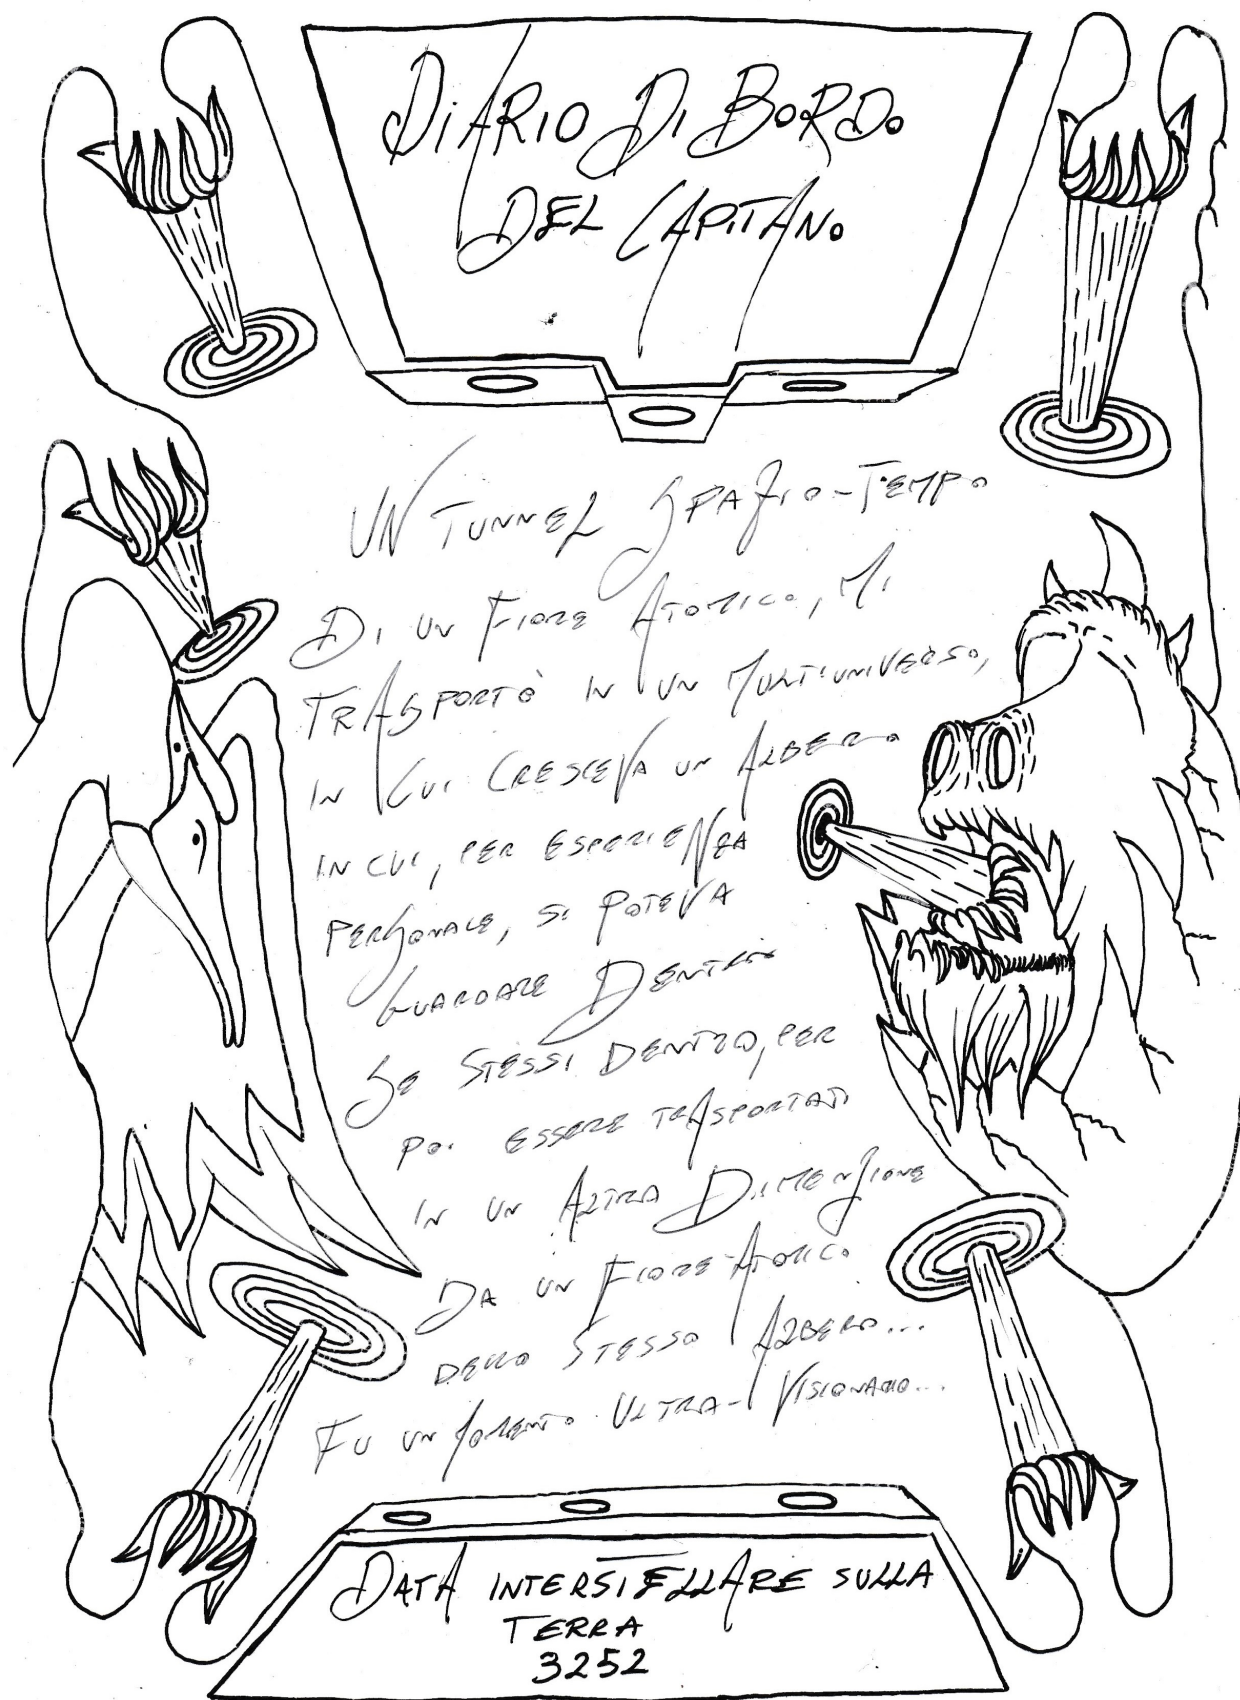 DIARIO DI BORDO
DEL CAPITANO
UN TUNNEL SPAZIO-TEMPO
DI UN FIORE ATOMICO, MI
TRASPORTÒ IN UN MULTIUNIVERSO,
IN CUI CRESCEVA UN ALBERO
IN CUI, PER ESPERIENZA
PERSONALE, SI POTEVA
GUARDARE DENTRO
SE STESSI DENTRO, PER
POI ESSERE TRASPORTATI
IN UN ALTRA DIMENSIONE
DA UN FIORE ATOMICO
DELLO STESSO ALBERO...
FU UN MOMENTO ULTRA-VISIONARIO...
DATA INTERSTELLARE SULLA
TERRA
3252